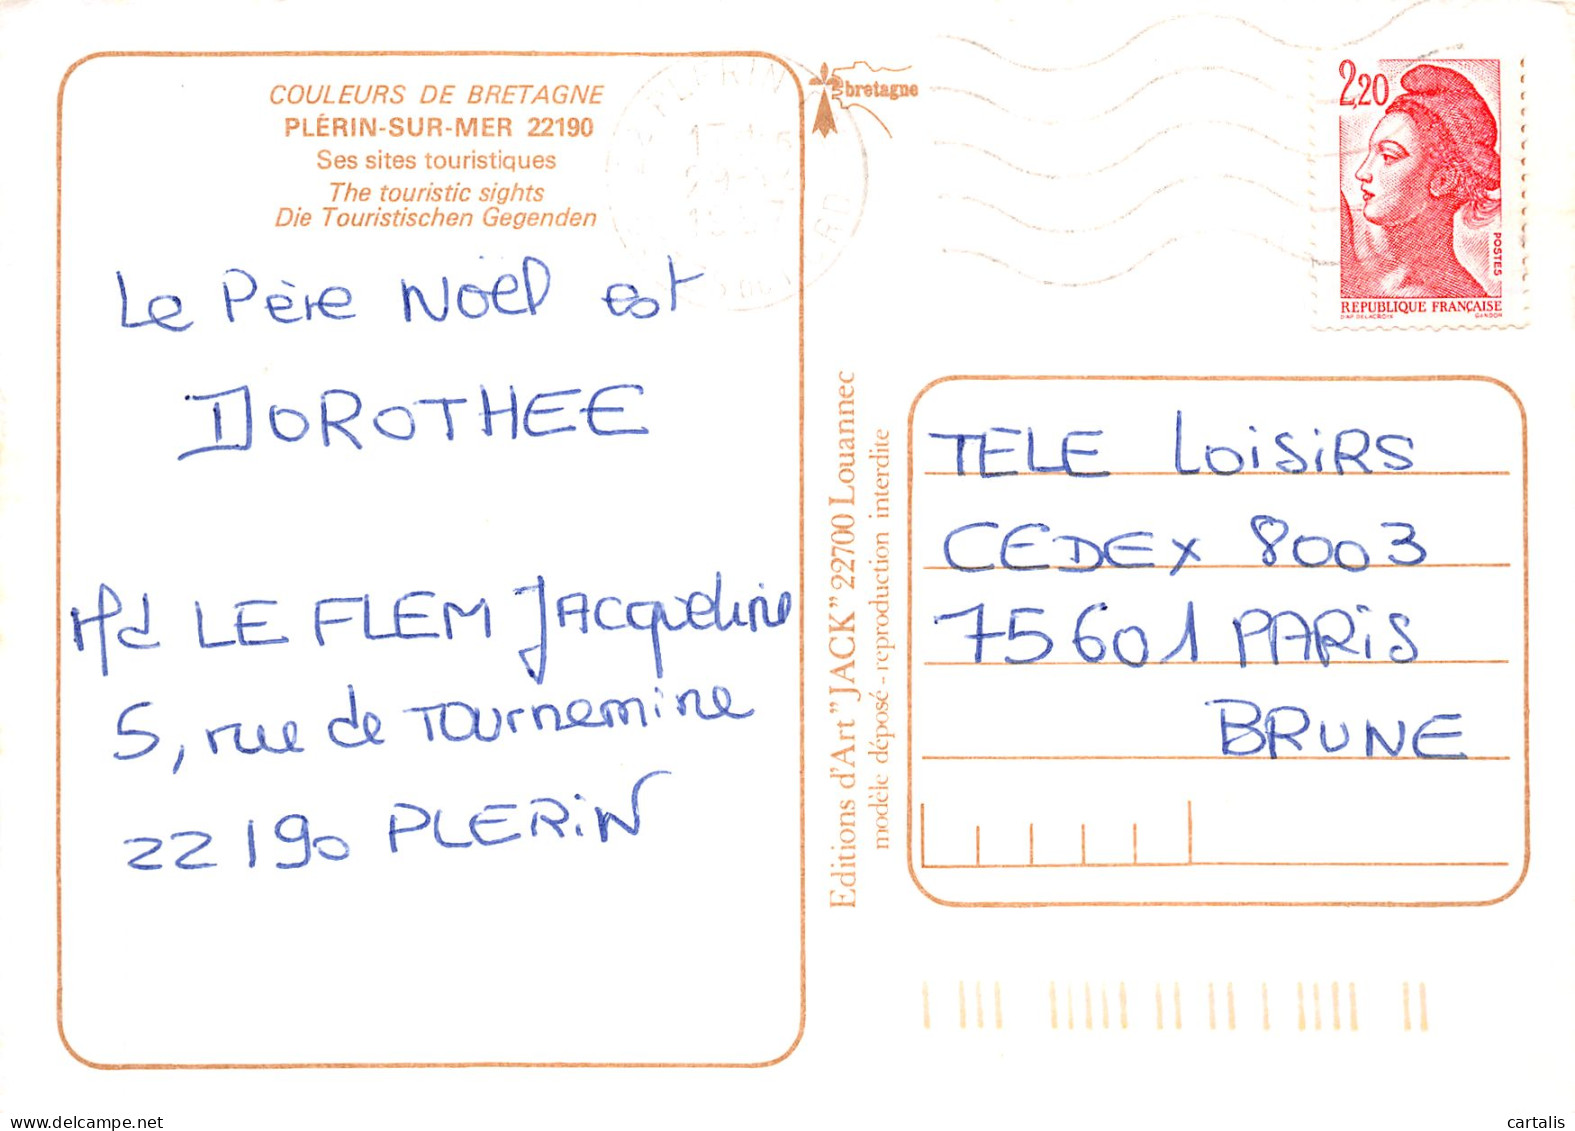 COULEURS DE BRETAGNE
PLÉRIN-SUR-MER 22190
Ses sites touristiques
The touristic sights
Die Touristischen Gegenden
Le Père Noël est
DOROTHEE
Md LE FLEM JACqueline
5, rue de Tournemine
22190 PLERIN
bretagne
PLERIN
Editions d'Art "JACK" 22700 Louannec
modèle déposé - reproduction interdite
2,20
POSTES
REPUBLIQUE FRANÇAISE
D'AP. DELACROIX GANDON
TELE LoisiRS
CEDEX 8003
75601 PARIS
BRUNE
cartalis